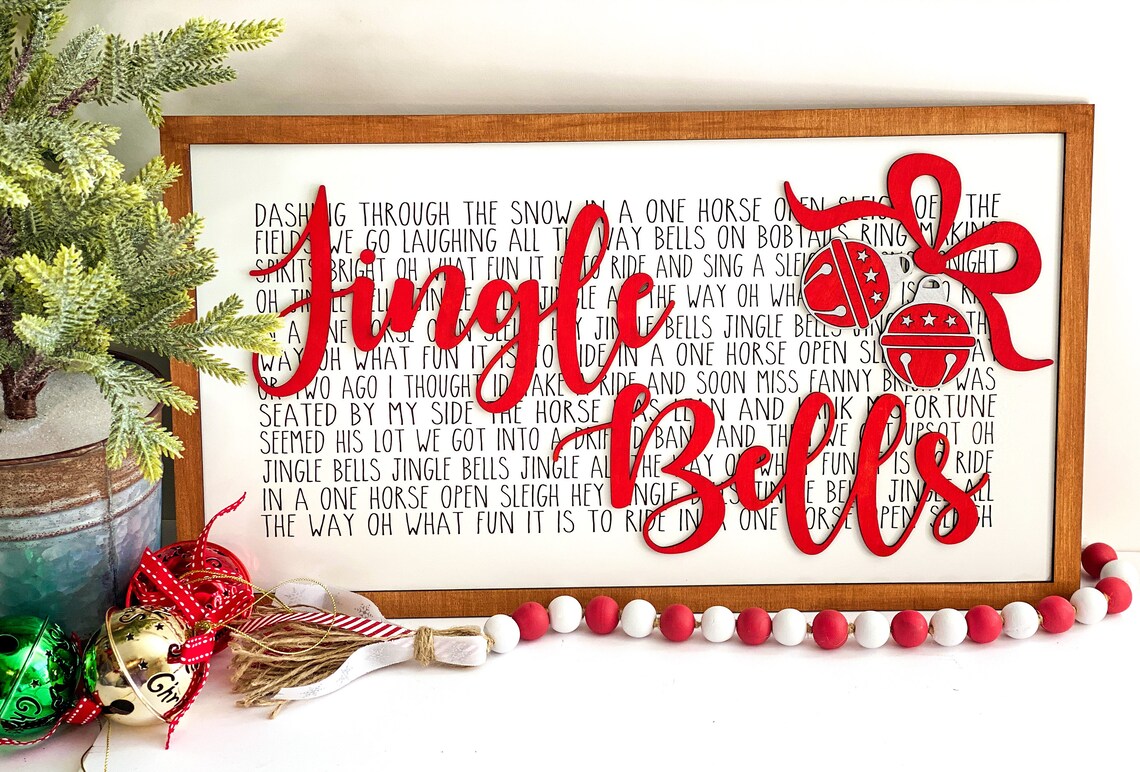 Jingle
Bells
DASHING THROUGH THE SNOW IN A ONE HORSE OPEN SLEIGH THE
FIELDS WE GO LAUGHING ALL THE WAY BELLS ON BOBTAILS RING MAKING
SPIRITS BRIGHT OH WHAT FUN IT IS TO RIDE AND SING A NIGHT
OH ALL THE WAY OH WHAT IS TO
A ONE HORSE OPEN HEY JINGLE BELLS JINGLE BELLS
WAY OH WHAT FUN IT IS TO RIDE IN A ONE HORSE OPEN
OR TWO AGO I THOUGHT ID TAKE A RIDE AND SOON MISS FANNY BRIGHT WAS
SEATED BY MY SIDE THE HORSE WAS LEAN AND LANK MISFORTUNE
SEEMED HIS LOT WE GOT INTO A DRIFTED BANK AND THEN WE GOT UPSOT OH
JINGLE BELLS JINGLE BELLS JINGLE ALL THE WAY OH WHAT FUN IT IS TO RIDE
IN A ONE HORSE OPEN SLEIGH HEY JINGLE BELLS JINGLE BELLS JINGLE ALL
THE WAY OH WHAT FUN IT IS TO RIDE IN A ONE HORSE OPEN SLEIGH
Chr